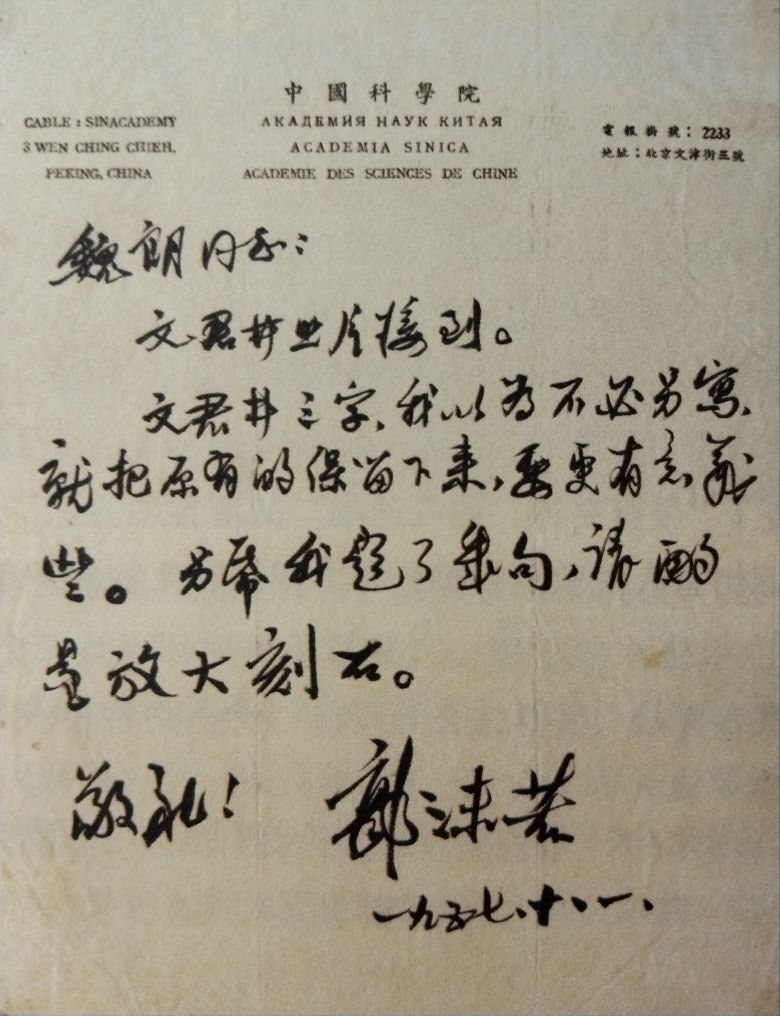 中國科學院
CABLE : SINACADEMY
АКАДЕМИЯ НАУК КИТАЯ
電報掛號：2233
3 WEN CHING CHIEH,
ACADEMIA SINICA
地址：北京文津街三號
PEKING, CHINA
ACADEMIE DES SCIENCES DE CHINE
魏朗同志：
文君井照片接到。
文君井三字，我以为不必另写，
就把原有的保留下来，要更有意義
些。另幕我题了几句，请酌
量放大刻石。
敬礼！
郭沫若
一九五七、十、一、